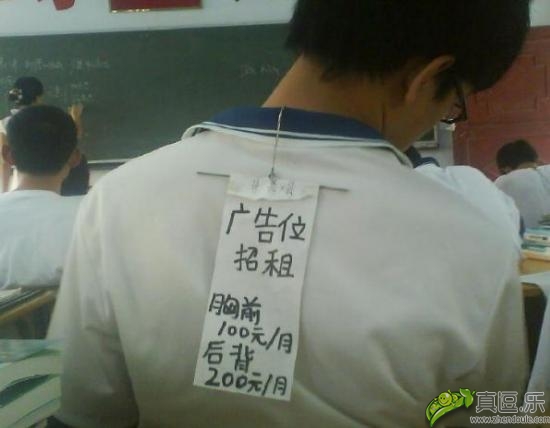 广告位
招租
胸前
100元/月
后背
200元/月
真逗.乐
www.zhendoule.com